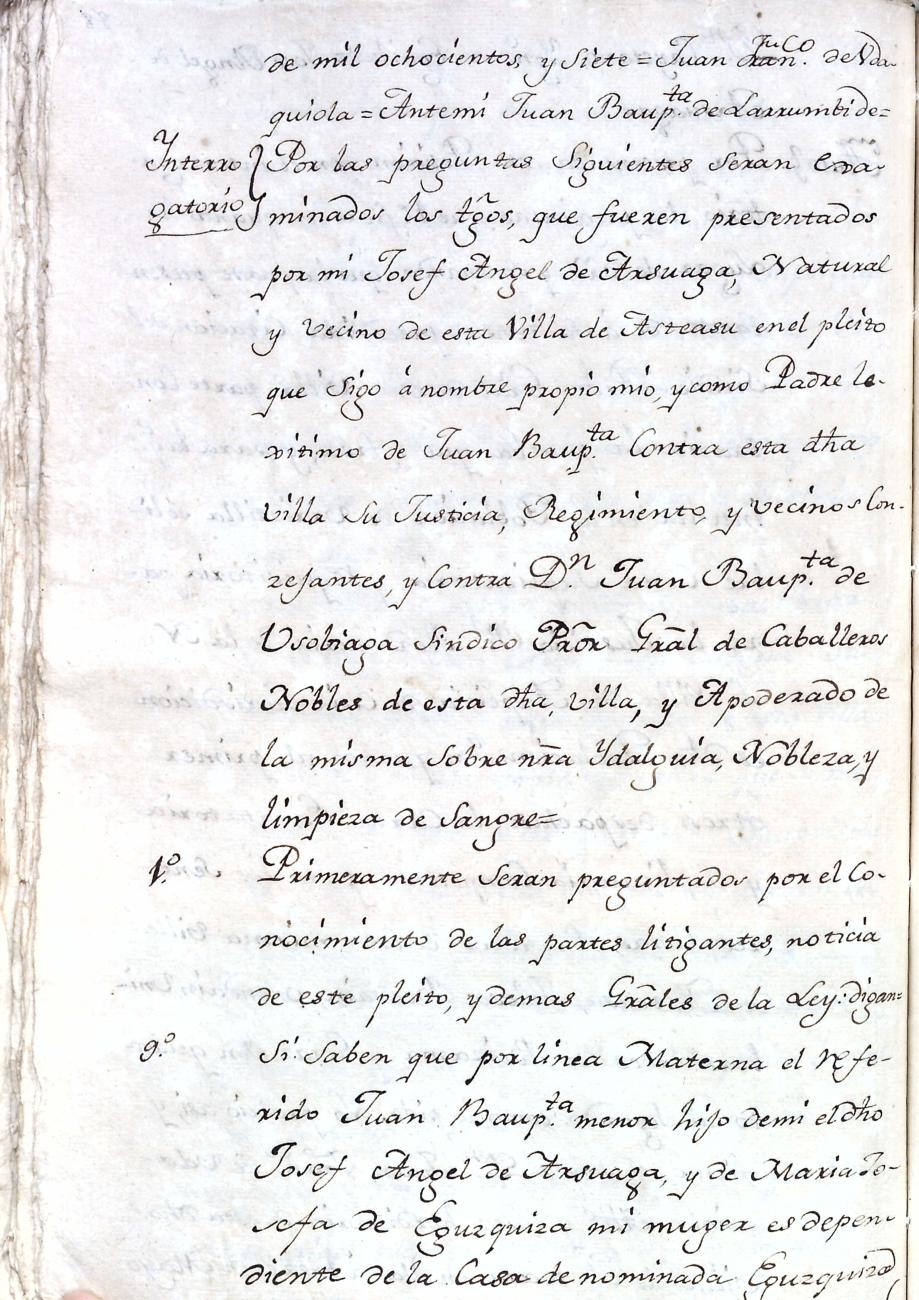 de mil ochocientos, y Siete = Juan Franco. de Vda-
quiola = Antemi Juan Baupta. de Larrumbide =
Interro
gatorio
Por las preguntas Siguientes seran exa-
minados los tgõs, que fueren presentados
por mi Josef Angel de Arsuaga, Natural
y vecino de esta Villa de Asteasu en el pleito
que Sigo á nombre propio mio, y como Padre le-
xitimo de Juan Baupta. Contra esta dha
villa su Justicia, Regimiento, y vecinos Con-
zejantes, y Contra Dn. Juan Baupta. de
Usobiaga Sindico Prõr Grãl de Caballeros
Nobles de esta dha, villa, y Apoderado de
la misma sobre nr̃a Ydalguia, Nobleza, y
limpieza de Sangre =
1.º Primeramente seran preguntados por el Co-
nocimiento de las partes litigantes, noticia
de este pleito, y demas Grãles de la Ley: digan =
9.º Si Saben que por linea Materna el refe-
rido Juan Baupta. menor hijo de mi el dho
Josef Angel de Arsuaga, y de Maria Jo-
sefa de Eguzquiza mi muger es depen-
diente de la Casa denominada Eguzquiza